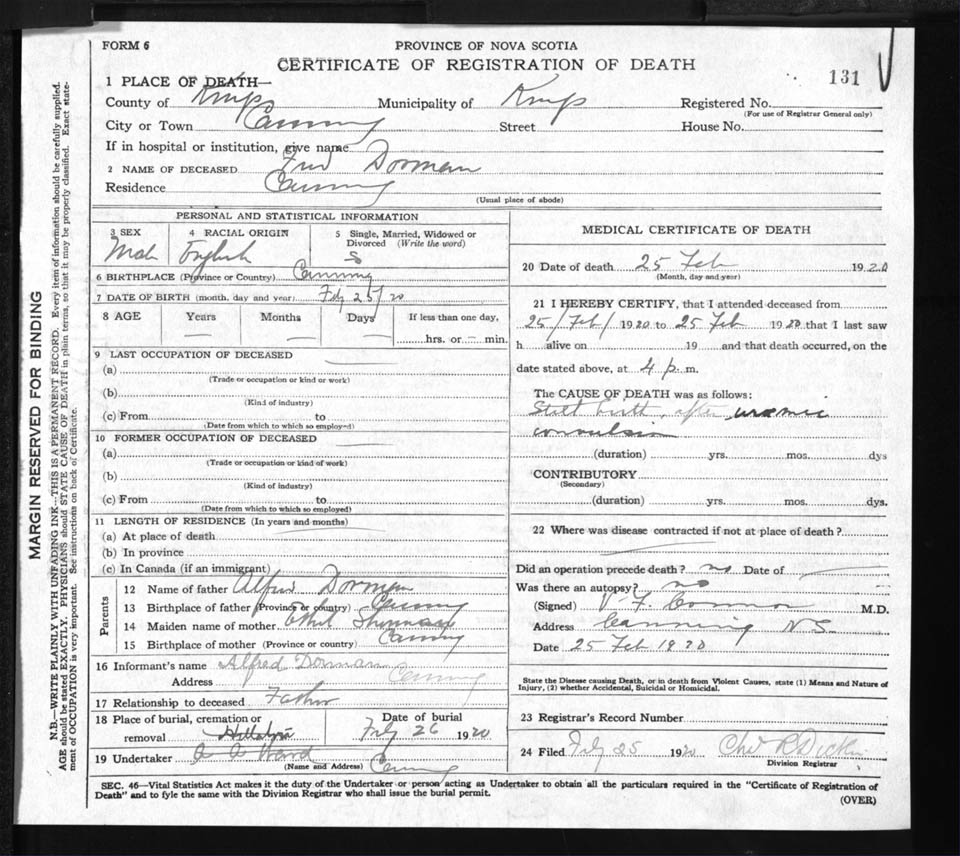 FORM 6
PROVINCE OF NOVA SCOTIA
CERTIFICATE OF REGISTRATION OF DEATH
131
1 PLACE OF DEATH—
County of Kings Municipality of Kings Registered No.
(For use of Registrar General only)
City or Town Canning Street House No.
If in hospital or institution, give name
2 NAME OF DECEASED Fred Dorman
Residence Canning
(Usual place of abode)
PERSONAL AND STATISTICAL INFORMATION
3 SEX 4 RACIAL ORIGIN 5 Single, Married, Widowed or
Divorced (Write the word)
Male English S
6 BIRTHPLACE (Province or Country) Canning
7 DATE OF BIRTH (month, day and year) Feby 25/20
8 AGE Years Months Days If less than one day,
hrs. or min.
9 LAST OCCUPATION OF DECEASED
(a)
(Trade or occupation or kind or work)
(b)
(Kind of industry)
(c) From to
(Date from which to which so employed)
10 FORMER OCCUPATION OF DECEASED
(a)
(Trade or occupation or kind of work)
(b)
(Kind of industry)
(c) From to
(Date from which to which so employed)
11 LENGTH OF RESIDENCE (In years and months)
(a) At place of death
(b) In province
(c) In Canada (if an immigrant)
Parents
12 Name of father Alfred Dorman
13 Birthplace of father (Province or country) Canning
14 Maiden name of mother Ethel
15 Birthplace of mother (Province or country) Canning
16 Informant's name Alfred Dorman
Address Canning
17 Relationship to deceased Father
18 Place of burial, cremation or Date of burial
removal Hillaton Feby 26 1920
19 Undertaker Ward
(Name and Address) Canning
MEDICAL CERTIFICATE OF DEATH
20 Date of death 25 Feb 1920
(Month, day and year)
21 I HEREBY CERTIFY, that I attended deceased from
25/Feb/ 1920 to 25 Feb 1920 that I last saw
h alive on 19 and that death occurred, on the
date stated above, at 4 p. m.
The CAUSE OF DEATH was as follows:
Still birth, after uremic
convulsion
(duration) yrs. mos. dys
CONTRIBUTORY
(Secondary)
(duration) yrs. mos. dys.
22 Where was disease contracted if not at place of death?
Did an operation precede death? no Date of
Was there an autopsy? no
(Signed) V F Connor M.D.
Address Canning N S
Date 25 Feb 1920
State the Disease causing Death, or in death from Violent Causes, state (1) Means and Nature of
Injury, (2) whether Accidental, Suicidal or Homicidal.
23 Registrar's Record Number
24 Filed Feby 25 1920 Chas R
Division Registrar
SEC. 46—Vital Statistics Act makes it the duty of the Undertaker or person acting as Undertaker to obtain all the particulars required in the "Certificate of Registration of
Death" and to fyle the same with the Division Registrar who shall issue the burial permit.
(OVER)
MARGIN RESERVED FOR BINDING
N.B.—WRITE PLAINLY WITH UNFADING INK—THIS IS A PERMANENT RECORD. Every item of information should be carefully supplied.
AGE should be stated EXACTLY. PHYSICIANS should STATE CAUSE OF DEATH in plain terms, so that it may be properly classified. Exact state-
ment of OCCUPATION is very important. See instructions on back of Certificate.